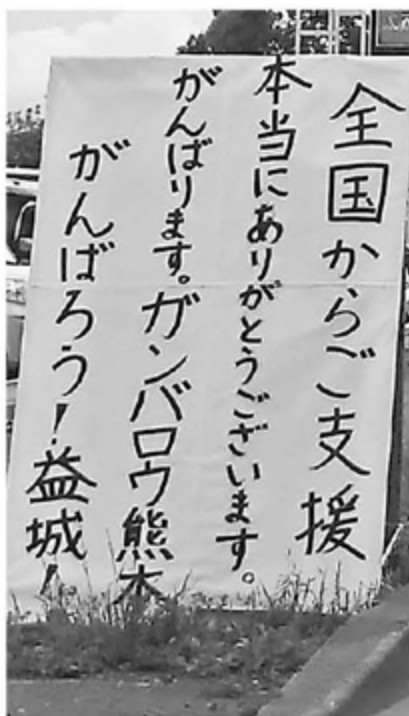 全国からご支援
本当にありがとうございます。
がんばります。ガンバロウ熊本
がんばろう！益城！